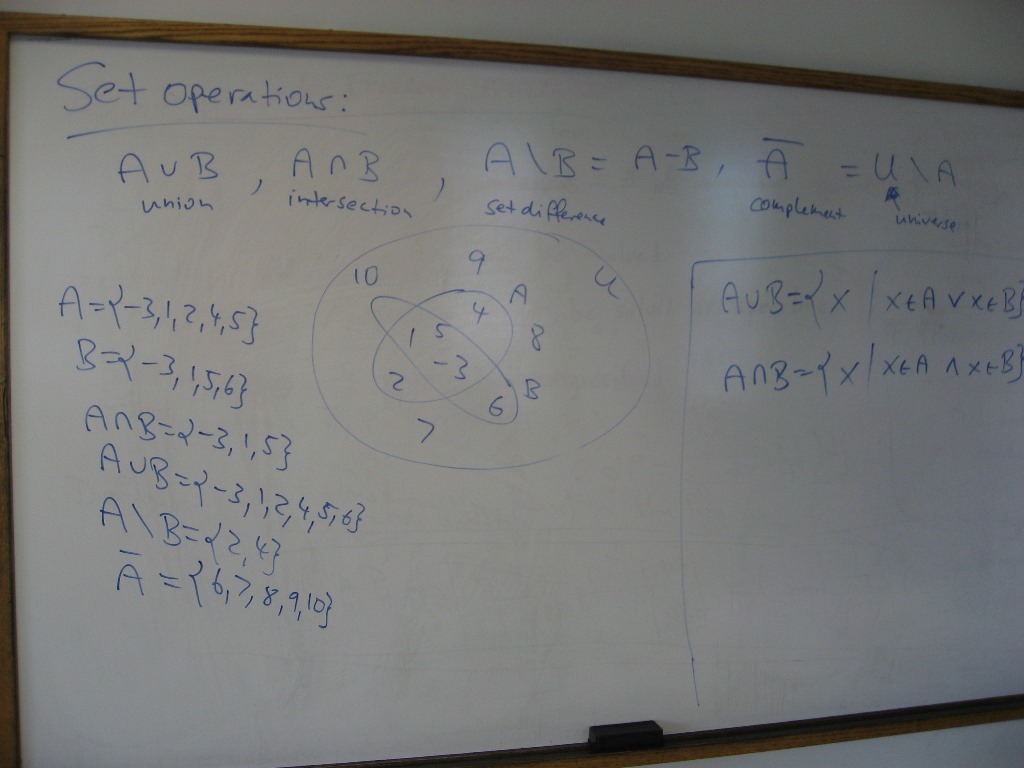 Set operations:
A ∪ B , A ∩ B , A \ B = A - B , A̅ = U \ A
union intersection set difference complement universe
A = {-3, 1, 2, 4, 5}
B = {-3, 1, 5, 6}
A ∩ B = {-3, 1, 5}
A ∪ B = {-3, 1, 2, 4, 5, 6}
A \ B = {2, 4}
A̅ = {6, 7, 8, 9, 10}
10 9 U
4 A
1 5 8
-3
2 B
6
7
A ∪ B = { x | x ∈ A ∨ x ∈ B}
A ∩ B = { x | x ∈ A ∧ x ∈ B}